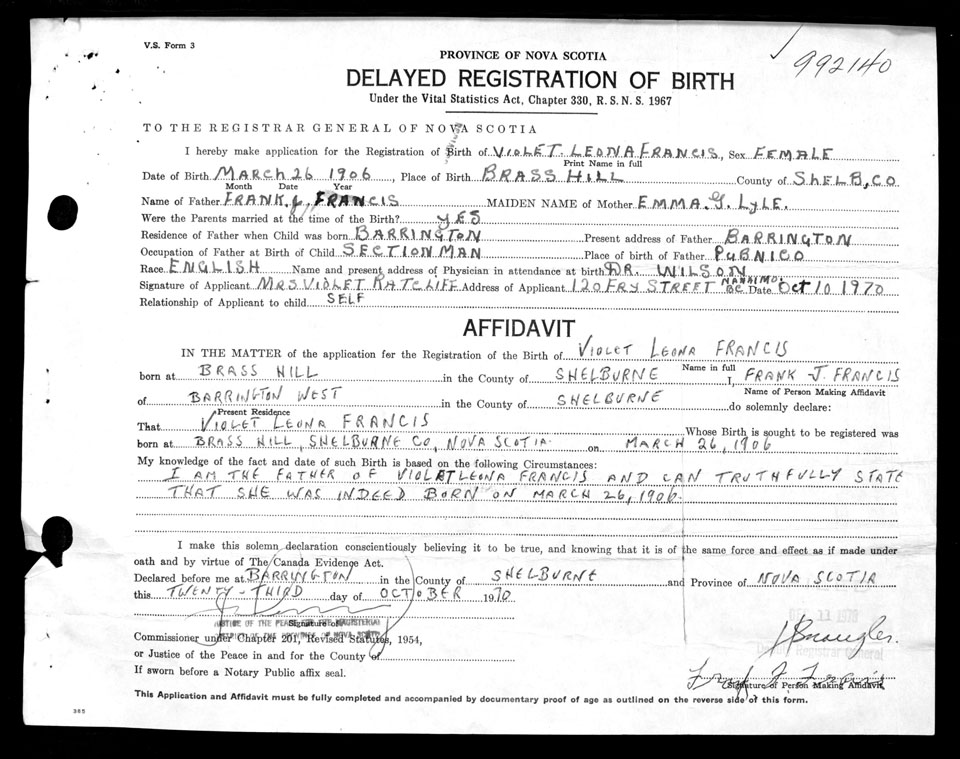 V.S. Form 3
992140
PROVINCE OF NOVA SCOTIA
DELAYED REGISTRATION OF BIRTH
Under the Vital Statistics Act, Chapter 330, R.S.N.S. 1967
TO THE REGISTRAR GENERAL OF NOVA SCOTIA
I hereby make application for the Registration of Birth of VIOLET LEONA FRANCIS, Sex FEMALE
Print Name in full
Date of Birth MARCH 26 1906, Place of Birth BRASS HILL County of SHELB, CO
Month Date Year
Name of Father FRANK J. FRANCIS MAIDEN NAME of Mother EMMA. G. LYLE.
Were the Parents married at the time of the Birth? YES
Residence of Father when Child was born BARRINGTON Present address of Father BARRINGTON
Occupation of Father at Birth of Child SECTION MAN Place of birth of Father PUBNICO
Race ENGLISH Name and present address of Physician in attendance at birth DR. WILSON
Signature of Applicant MRS VIOLET RATCLIFF Address of Applicant 120 FRY STREET NANAIMO. BC Date Oct 10 1970
Relationship of Applicant to child SELF
AFFIDAVIT
IN THE MATTER of the application for the Registration of the Birth of VIOLET LEONA FRANCIS
Name in full
born at BRASS HILL in the County of SHELBURNE I, FRANK J. FRANCIS
Name of Person Making Affidavit
of BARRINGTON WEST in the County of SHELBURNE do solemnly declare:
Present Residence
That VIOLET LEONA FRANCIS Whose Birth is sought to be registered was
born at BRASS HILL, SHELBURNE CO, NOVA SCOTIA on MARCH 26, 1906
My knowledge of the fact and date of such Birth is based on the following Circumstances:
I AM THE FATHER OF VIOLET LEONA FRANCIS AND CAN TRUTHFULLY STATE
THAT SHE WAS INDEED BORN ON MARCH 26, 1906.
I make this solemn declaration conscientiously believing it to be true, and knowing that it is of the same force and effect as if made under
oath and by virtue of The Canada Evidence Act.
Declared before me at BARRINGTON in the County of SHELBURNE and Province of NOVA SCOTIA
this TWENTY-THIRD day of OCTOBER 1970
DEC 11 1970
Signature of
JUSTICE OF THE PEACE
Commissioner under Chapter 201, Revised Statutes, 1954,
Deputy Registrar General
or Justice of the Peace in and for the County of
If sworn before a Notary Public affix seal.
(Signature of Person Making Affidavit)
This Application and Affidavit must be fully completed and accompanied by documentary proof of age as outlined on the reverse side of this form.
385